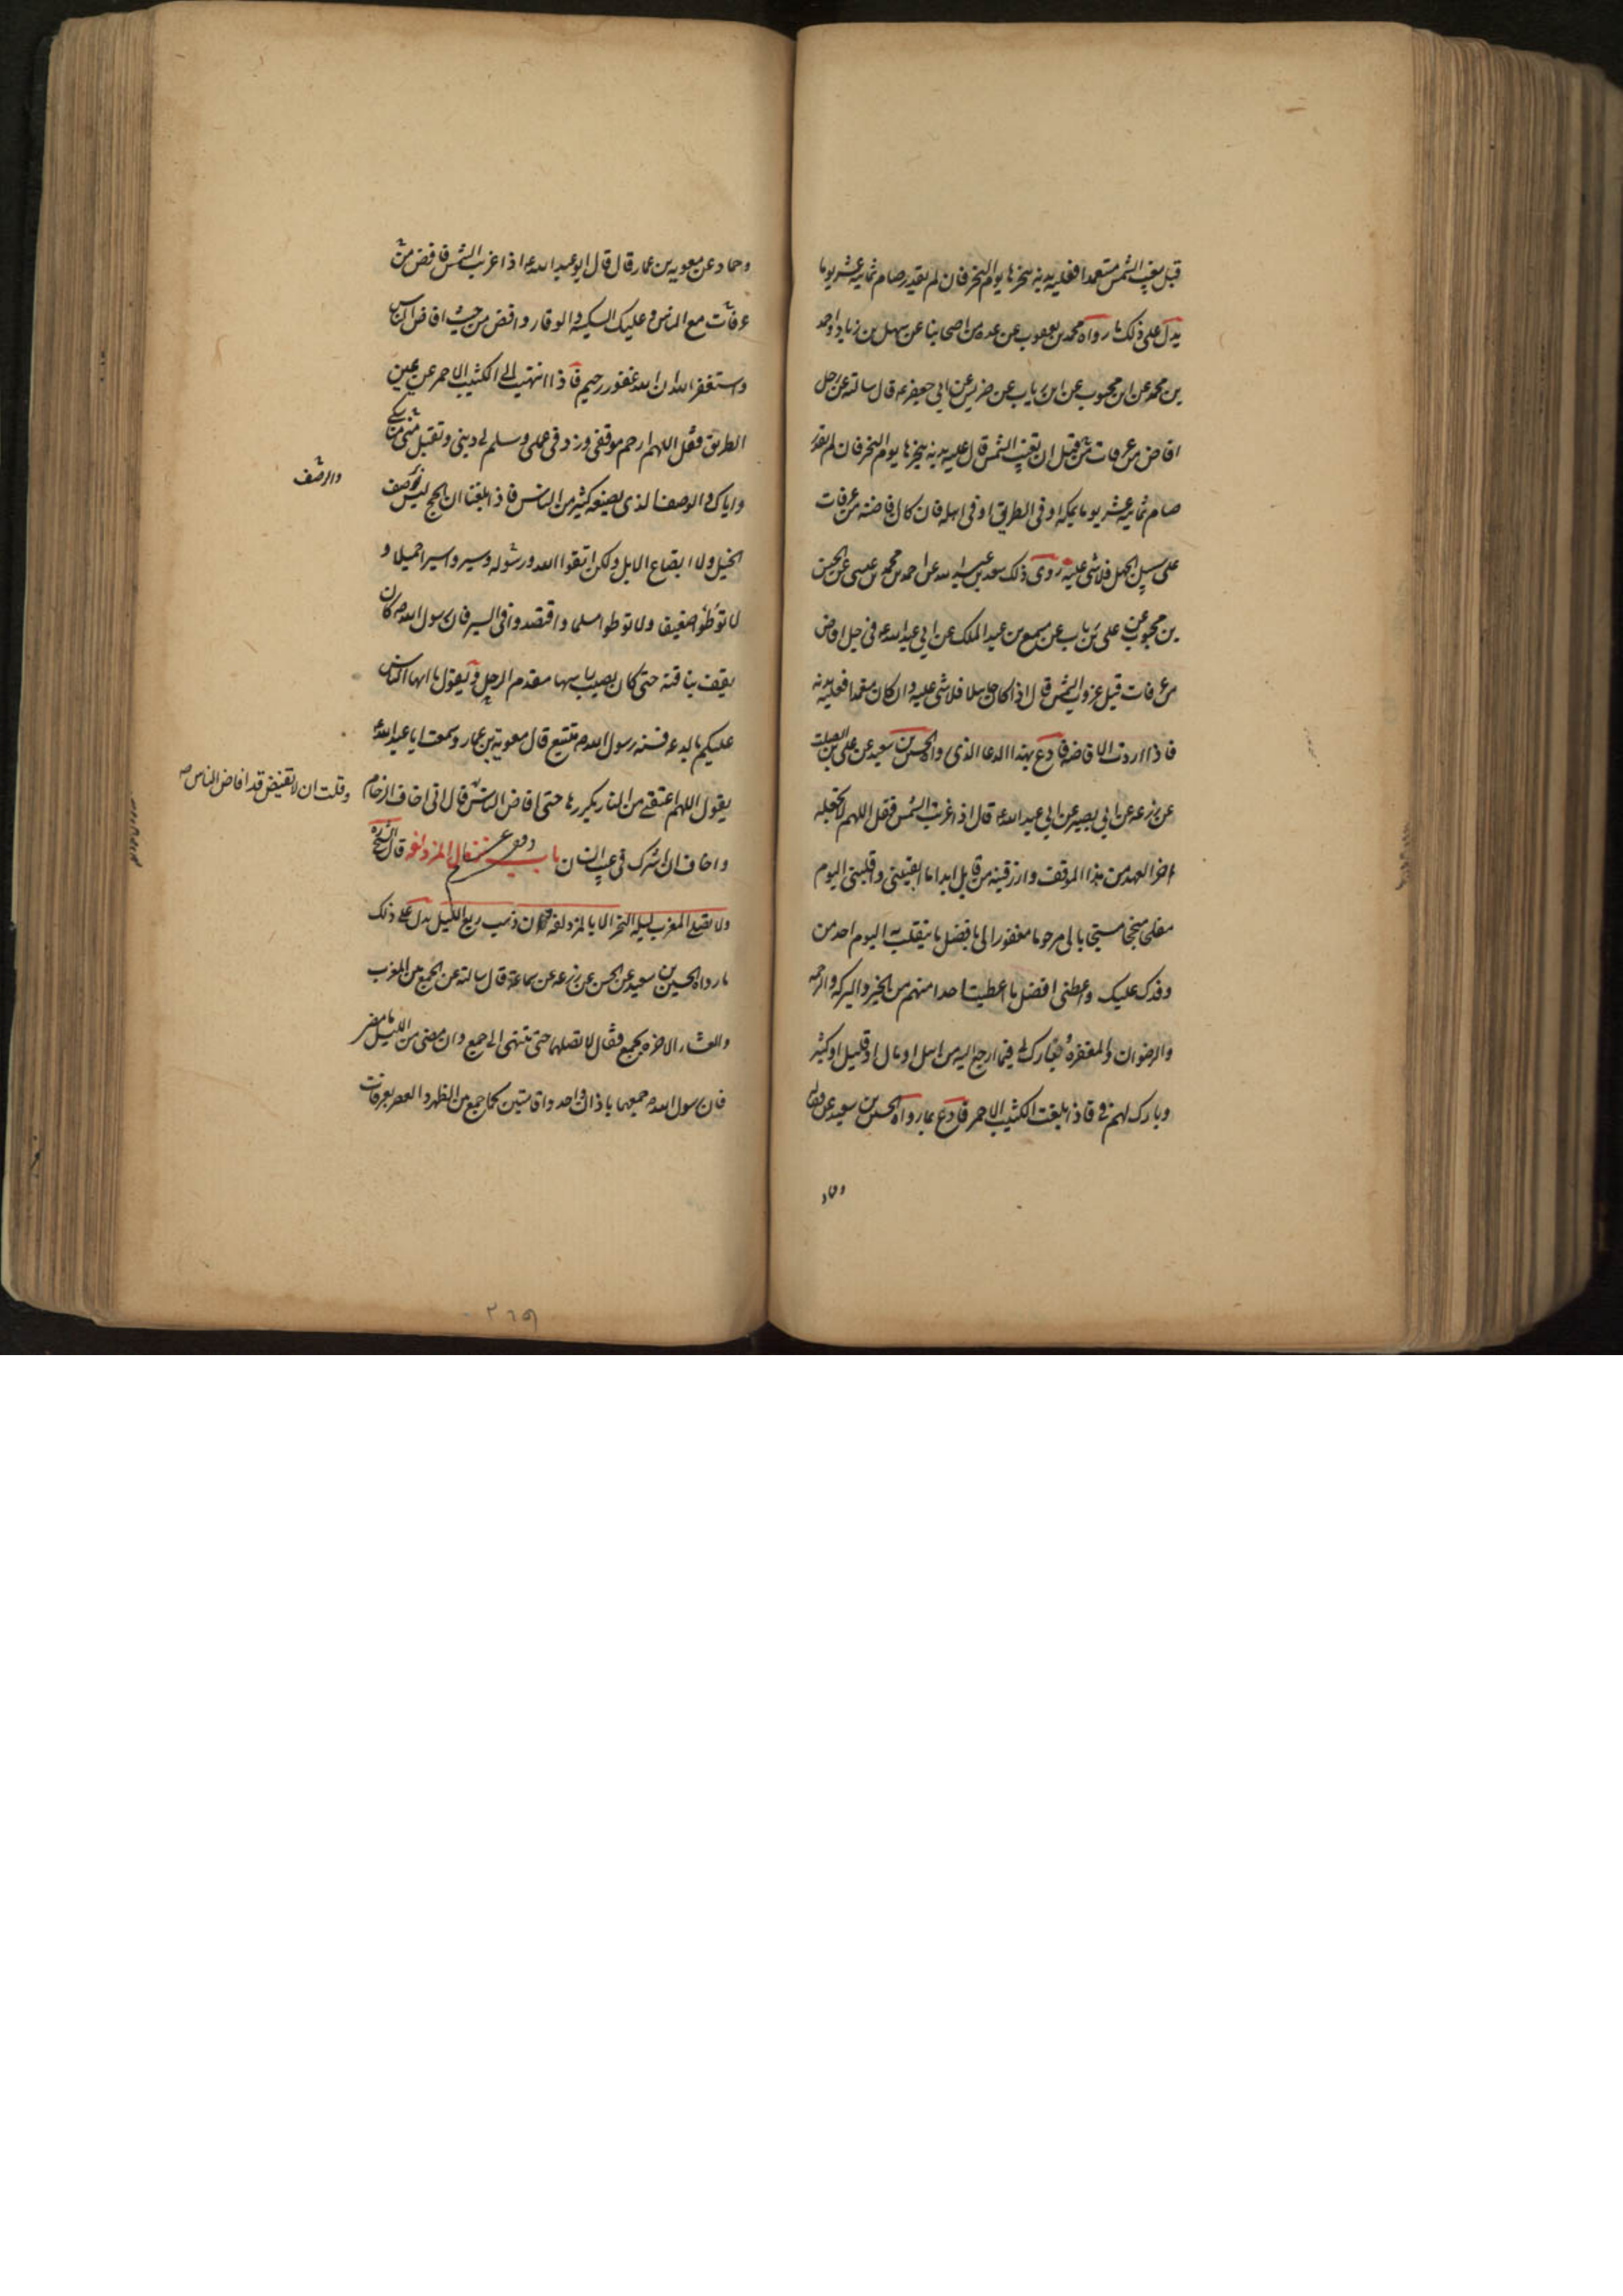 قبل مغيب الشمس متعمدا فعليه بدنه ينحرها يوم النحر فان لم يقدر صام ثمانيه عشر يوما
يدل على ذلك ما رواه محمد بن يعقوب عن عده من اصحابنا عن سهل بن زياد واحمد
بن محمد عن ابن محبوب عن ابن رياب عن ضريس عن ابي جعفر ع قال سالته عن رجل
افاض من عرفات من قبل ان تغيب الشمس قال عليه بدنه ينحرها يوم النحر فان لم يقدر
صام ثمانيه عشر يوما بمكه او في الطريق او في اهله فان كان افاضته من عرفات
على سبيل الجهل فلا شي عليه روى ذلك سعد بن عبد الله عن احمد بن محمد بن عيسى عن الحسن
بن محبوب عن على بن رياب عن مسمع بن عبد الملك عن ابي عبد الله ع في رجل افاض
من عرفات قبل غروب الشمس قال اذا كان جاهلا فلا شي عليه وان كان متعمدا فعليه بدنه
فاذا اردت الافاضه فادع بهذا الدعا الذى رواه الحسين بن سعيد عن على بن الصلت
عن زرعه عن ابي بصير عن ابي عبد الله ع قال اذا غربت الشمس فقل اللهم لا تجعله
اخر العهد من هذا الموقف وارزقنيه من قابل ابدا ما ابقيتني واقلبني اليوم
مفلحا منجحا مستجابا لى مرحوما مغفورا لى بافضل ما ينقلب به اليوم احد من
وفدك عليك واعطني افضل ما اعطيت احدا منهم من الخير والبركه والرحمه
والرضوان والمغفره وبارك لى فيما ارجع اليه من اهل او مال او قليل او كثير
وبارك لهم في فاذا بلغت الكثيب الاحمر فادع بما رواه الحسين بن سعيد عن فضاله
وحماد
وحماد عن معويه بن عمار قال قال ابو عبد الله ع اذا غربت الشمس فافض من
عرفات مع الناس وعليك السكينه والوقار وافض من حيث افاض الناس
واستغفر الله ان الله غفور رحيم فاذا انتهيت الى الكثيب الاحمر عن يمين
الطريق فقل اللهم ارحم موقفي وزد في عملى وسلم لى دينى وتقبل مناسكى
واياك والوصف الذى يصنعه كثير من الناس فاذا بلغنا ان الحج ليس بوصف
والرصف
الخيل ولا ايضاع الابل ولكن اتقوا الله ورسوله وسيروا سيرا جميلا و
لا توطوا ضعيفا ولا توطوا مسلما واقتصدوا في السير فان رسول الله ص كان
يقف بناقته حتى كان يصيب راسها مقدم الرحل ويقول يا ايها الناس
عليكم بالدعه فسنه رسول الله ص تتبع قال معويه بن عمار وسمعت ابا عبد الله ع
يقول اللهم اعتقني من النار يكررها حتى افاض الناس قال انى اخاف الزحام
وقلت ان لا تفيض قد افاض الناس صح
واخاف ان اشرك في عيب انسان باب نزول المزدلفه قال الشيخ ره
ولا يصلى المغرب ليله النحر الا بالمزدلفه وان ذهب ربع الليل يدل على ذلك
ما رواه الحسين بن سعيد عن الحسن عن زرعه عن سماعة قال سالته عن الجمع بين المغرب
والعشاء الاخره بجمع فقال لا تصلهما حتى تنتهى الى جمع وان مضى من الليل ما مضى
فان رسول الله ص جمعهما باذان واحد واقامتين كما جمع بين الظهر والعصر بعرفات
۲۶۹